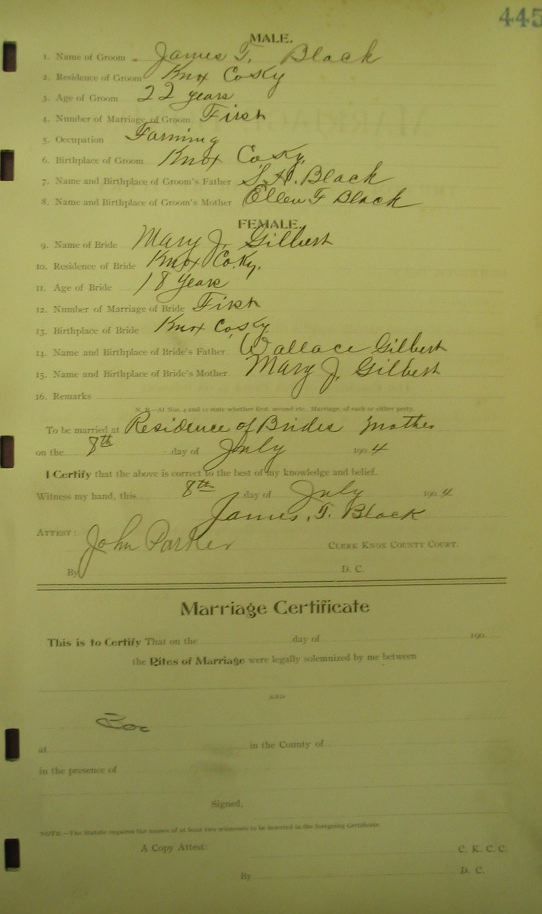 445
MALE.
1. Name of Groom James T. Black
2. Residence of Groom Knox Co Ky
3. Age of Groom 22 years
4. Number of Marriage of Groom First
5. Occupation Farming
6. Birthplace of Groom Knox Co, Ky,
7. Name and Birthplace of Groom's Father S. H. Black
8. Name and Birthplace of Groom's Mother Ellen F Black
FEMALE.
9. Name of Bride Mary J. Gilbert
10. Residence of Bride Knox Co. Ky.
11. Age of Bride 18 years
12. Number of Marriage of Bride First
13. Birthplace of Bride Knox Co, Ky
14. Name and Birthplace of Bride's Father Wallace Gilbert
15. Name and Birthplace of Bride's Mother Mary J. Gilbert
16. Remarks
N. B.—At Nos. 4 and 12 state whether first, second etc., Marriage, of each or either party.
To be married at Residence of Brides Mother
on the 8th day of July 1904
I Certify that the above is correct to the best of my knowledge and belief.
Witness my hand, this 8th day of July 1904
James. T. Black
ATTEST: John Parker CLERK KNOX COUNTY COURT.
By D. C.
Marriage Certificate
This is to Certify That on the day of 190
the Rites of Marriage were legally solemnized by me between
AND
at in the County of
in the presence of
Signed,
NOTE.—The Statute requires the names of at least two witnesses to be inserted in the foregoing Certificate.
A Copy Attest: C. K. C. C.
By D. C.